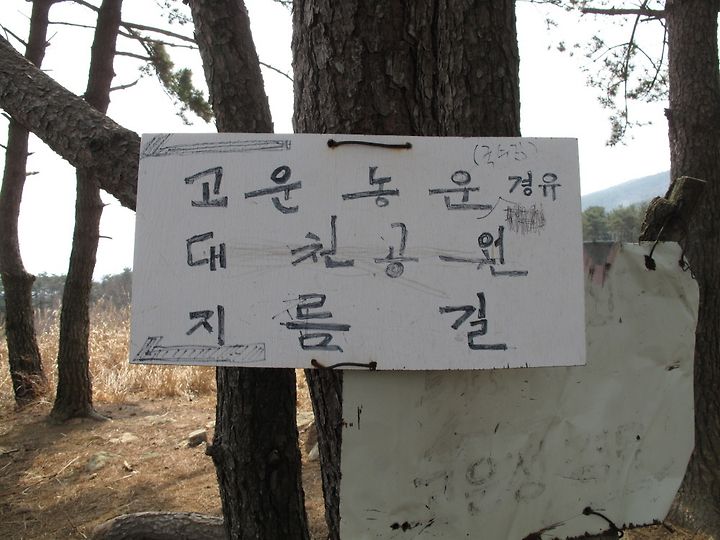 고운농운 경유
대 천공원
지름 길